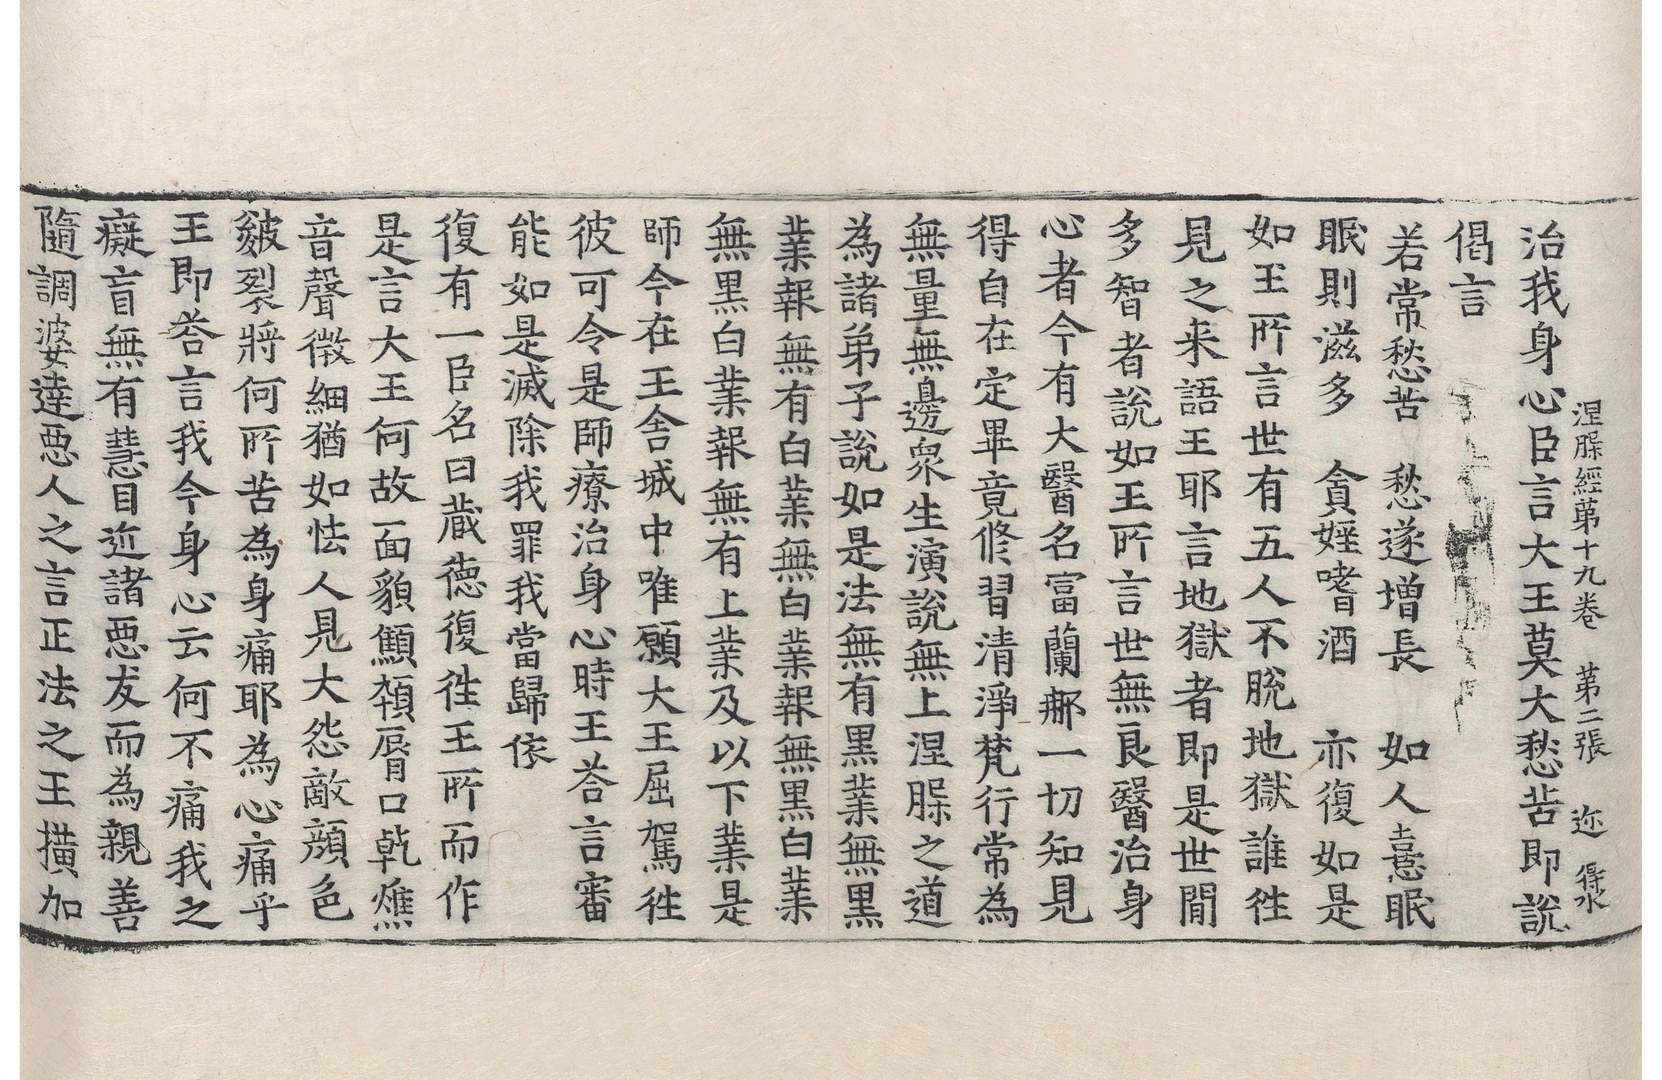 涅槃經第十九卷　第二張　迩　得水
治我身心臣言大王莫大愁苦即說
偈言
若常愁苦　愁遂增長　如人憙眠
眠則滋多　貪婬嗜酒　亦復如是
如王所言世有五人不脫地獄誰徃
見之来語王耶言地獄者即是世間
多智者說如王所言世無良醫治身
心者今有大醫名富蘭那一切知見
得自在定畢竟修習清淨梵行常為
無量無邊衆生演說無上涅槃之道
為諸弟子說如是法無有黑業無黑
業報無有白業無白業報無黑白業
無黑白業報無有上業及以下業是
師今在王舍城中唯願大王屈駕徃
彼可令是師療治身心時王荅言審
能如是滅除我罪我當歸依
復有一臣名曰藏德復徃王所而作
是言大王何故面貌顦顇脣口乹燋
音聲微細猶如怯人見大怨敵顏色
皴裂將何所苦為身痛耶為心痛乎
王即荅言我今身心云何不痛我之
癡盲無有慧目近諸惡友而為親善
隨調婆達惡人之言正法之王橫加